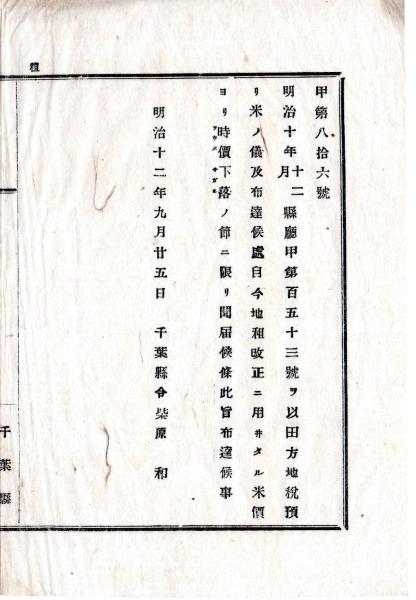 甲第八拾六號
明治十年十二月縣廳甲第百五十三號ヲ以田方地税預
リ米ノ儀及布達候處自今地租改正ニ用ヰタル米價
ヨリ時價下落ノ節ニ限リ聞届候條此旨布達候事
明治十二年九月廿五日 千葉縣令柴原 和
租
千葉縣